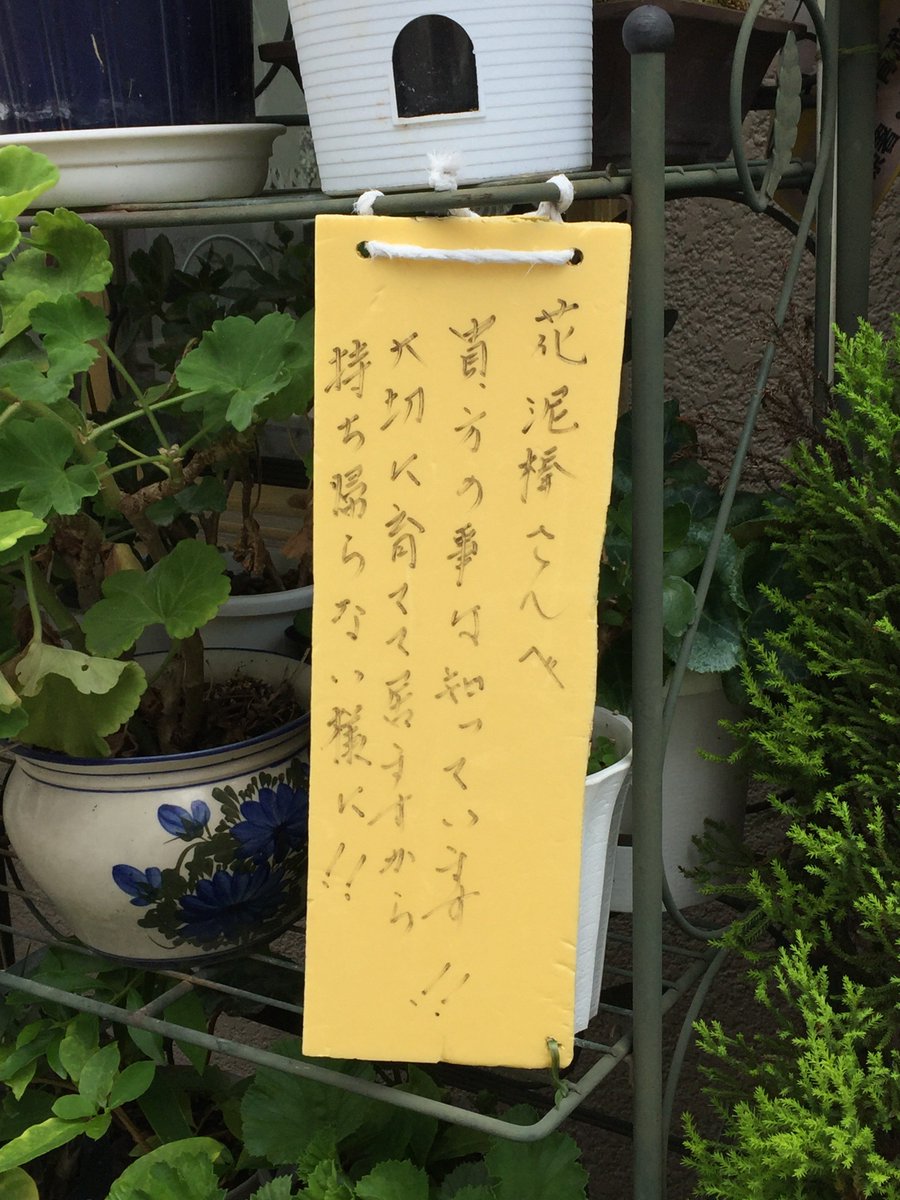 花泥棒さんへ
貴方の事は知っています!!
大切に育てて居ますから
持ち帰らない様に!!